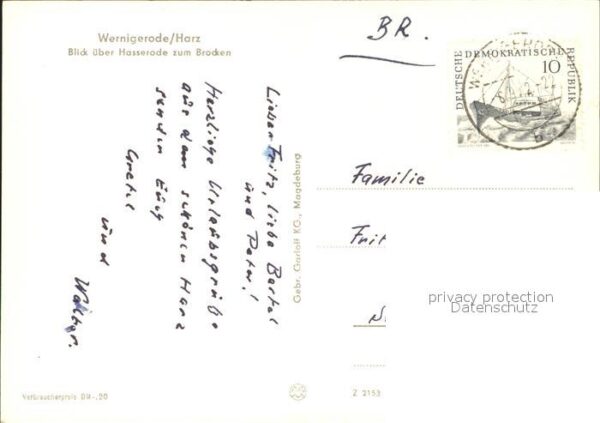 Wernigerode/Harz
Blick über Hasserode zum Brocken
BR.
DEUTSCHE DEMOKRATISCHE REPUBLIK
10
Lieber Fritz, liebe Bertel
und Peter!
Herzliche Urlaubsgrüße
aus dem schönen Harz
senden Euch
Gretel
und
Walter.
Gebr. Garloff KG., Magdeburg
Familie
Frit
privacy protection
Datenschutz
Verbraucherpreis DM -,20
Z 2153